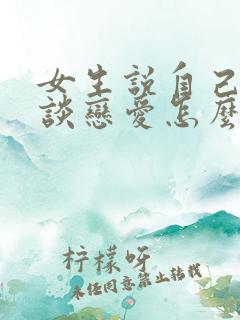 女生說自己
談戀愛怎麼
柠檬呀
未经同意禁止转载